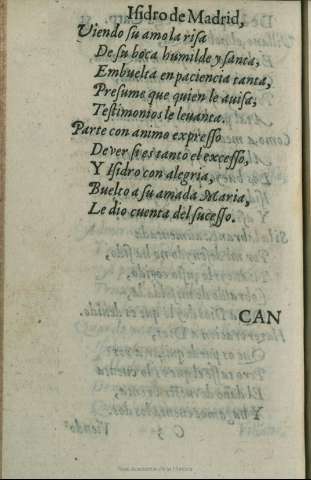 Iſidro de Madrid,
Viendo ſu amo la riſa
De ſu boca humilde y ſanta,
Embuelta en paciencia tanta,
Preſume que quien le auiſa,
Teſtimonios le leuanta.
Parte con animo expreſſo
De ver ſi es tanto el exceſſo,
Y Iſidro con alegria,
Buelto a ſu amada Maria,
Le dio cuenta del ſuceſſo.
CAN
Real Academia de la Historia